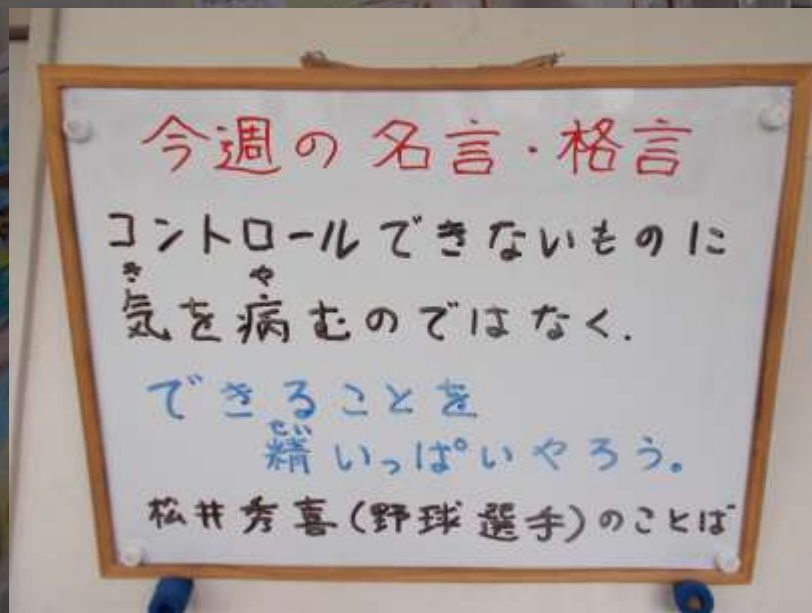 今週の名言・格言
コントロールできないものに
き や
気を病むのではなく.
できることを
せい
精いっぱいやろう。
松井秀喜(野球選手)のことば